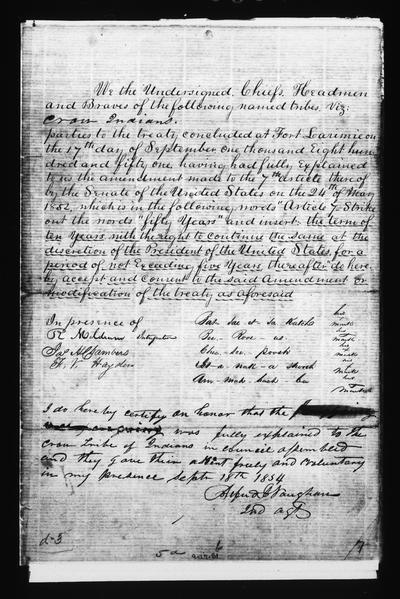 We the Undersigned, Chiefs, Headmen
and Braves of the following named tribes, Viz:
Crow Indians.
parties to the treaty concluded at Fort Laramie on
the 17th day of September one thousand Eight hun
dred and fifty one, having had fully Explained
to us the amendment made to the 7th article thereof
by the Senate of the United States on the 24th of May
1852, which is in the following words "Article 7 - Strike
out the words "fifty Years" and insert the term of
ten Years, with the right to continue the same at the
discretion of the President of the United States, for a
period of not Exceeding five Years thereafter" do here
by accept and consent to the said Amendment or
modification of the treaty as aforesaid
In presence of
his
mark
his
mark
his
mark
his
mark
his
mark
I do here by certify on honor that the
was fully explained to the
Crow Tribe of Indians in council assembled
and they gave their assent freely and voluntary
in my presence Septr 18th 1854
Alfred J Vaughan
Ind agt
d-3